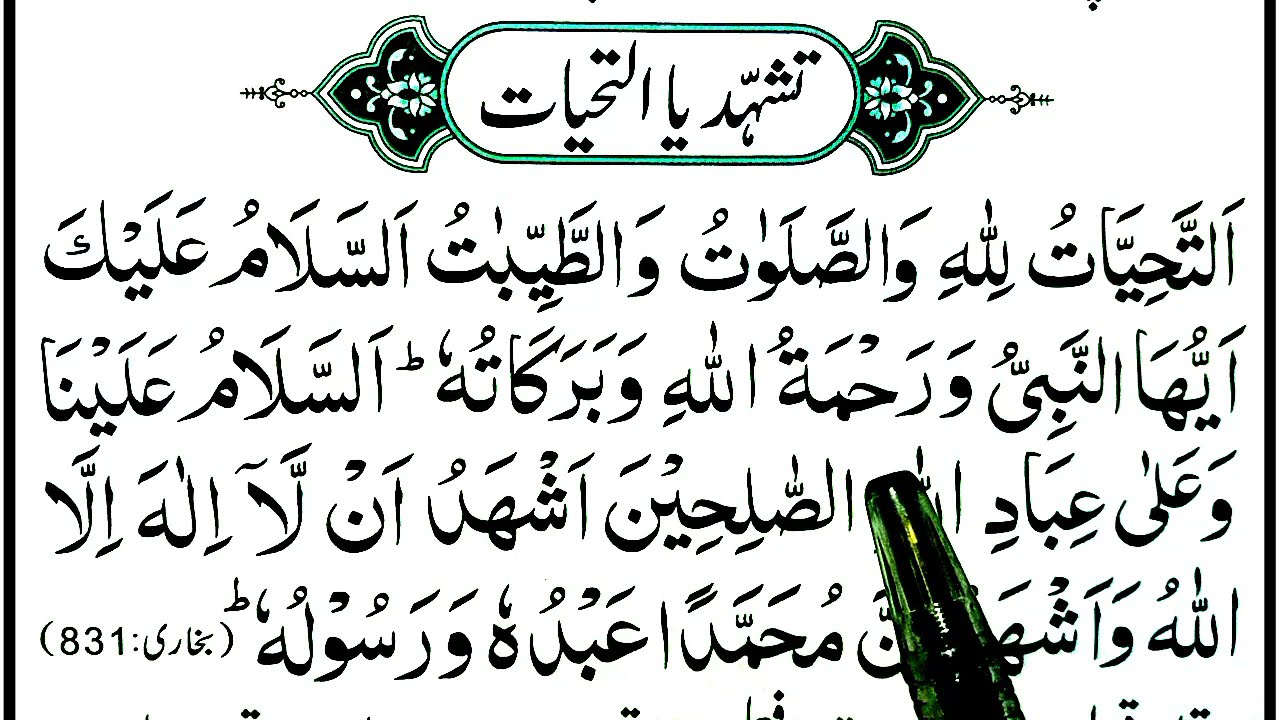 تشہّد یا التحیات
اَلتَّحِيَّاتُ لِلّٰهِ وَالصَّلَوٰتُ وَالطَّيِّبٰتُ اَلسَّلَامُ عَلَيْكَ
اَيُّهَا النَّبِىُّ وَرَحْمَةُ اللّٰهِ وَبَرَكَاتُهٗ ؕ اَلسَّلَامُ عَلَيْنَا
وَعَلٰى عِبَادِ الصّٰلِحِيْنَ اَشْهَدُ اَنْ لَّآ اِلٰهَ اِلَّا
اللّٰهُ وَاَشْهَ مُحَمَّدًا عَبْدُهٗ وَرَسُوْلُهٗ ؕ (بخاری:831)